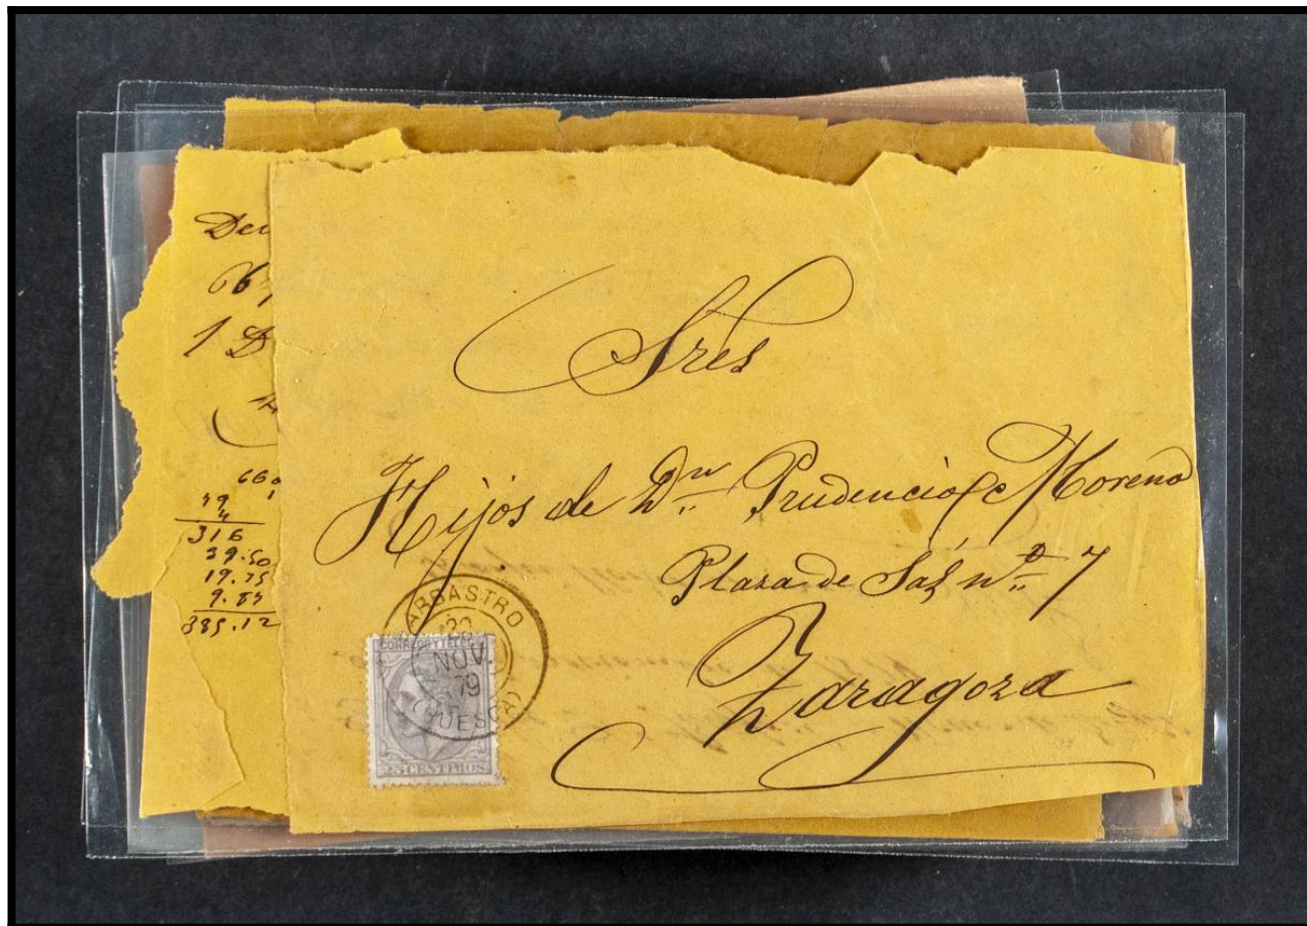 Sres
Hijos de Dn Prudencio Moreno
Plaza de Sas nº 7
Zaragoza
ARBASTRO
NOV.
79
(HUESCA)
CORREOS Y TELEGS
25 CENTIMOS
1 D
79
4
316
39.50
19.75
9.87
385.12